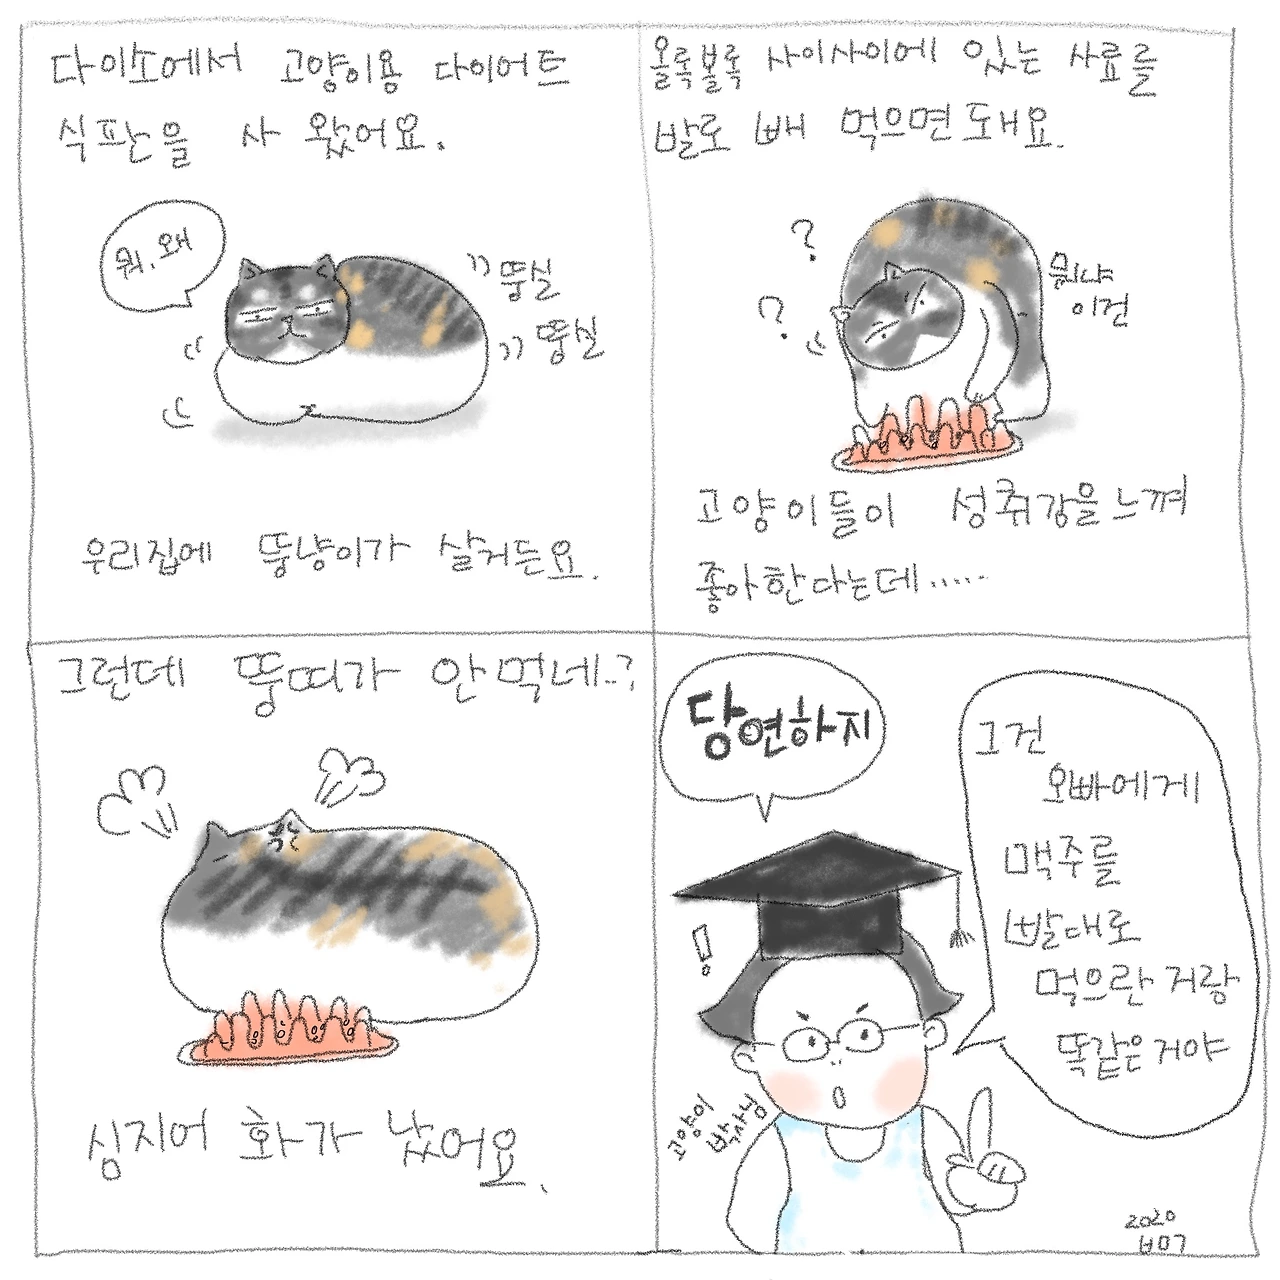 다이소에서 고양이용 다이어트
식판을 사 왔어요.
뭐, 왜
뚱실
뚱실
우리집에 뚱냥이가 살거든요.
올록볼록 사이사이에 있는 사료를
발로 빼 먹으면 돼요.
?
?
뭐냐
이건
고양이들이 성취감을 느껴
좋아한다는데.....
그런데 뚱띠가 안 먹네..?
심지어 화가 났어요.
당연하지
그건
오빠에게
맥주를
빨대로
먹으란 거랑
똑같은거야
!
고양이
박사님
2020